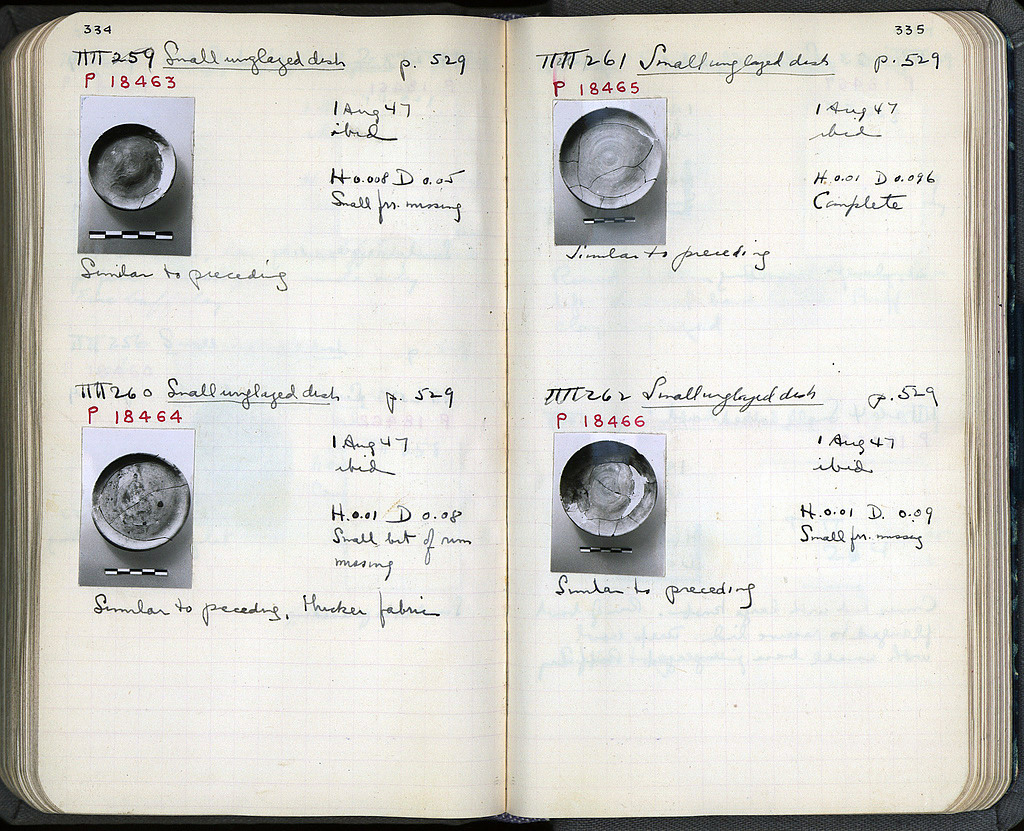 334
ΠΠ 259 Small unglazed dish p. 529
P 18463
1 Aug 47
ibid
H 0.008 D 0.05
Small frr. missing
Similar to preceding
ΠΠ 260 Small unglazed dish p. 529
P 18464
1 Aug 47
ibid
H. 0.01 D 0.08
Small bit of rim
missing
Similar to preceding, thicker fabric
335
ΠΠ 261 Small unglazed dish p. 529
P 18465
1 Aug 47
ibid
H. 0.01 D 0.096
Complete
Similar to preceding
ΠΠ 262 Small unglazed dish p. 529
P 18466
1 Aug 47
ibid
H. 0.01 D. 0.09
Small frr. missing
Similar to preceding